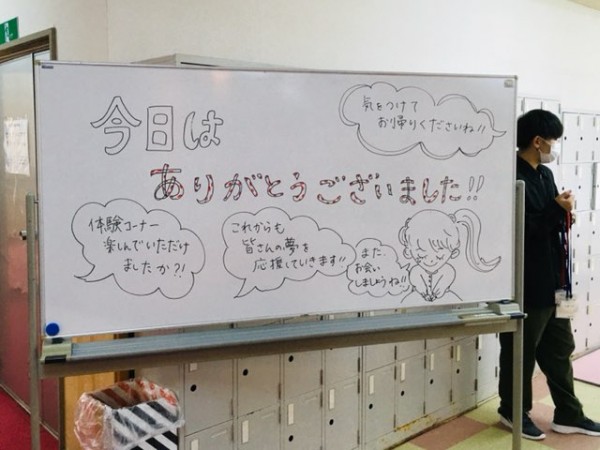 今日は
気をつけて
お帰りくださいね!!
ありがとうございました!!
体験コーナー
楽しんでいただけ
ましたか?!
これからも
皆さんの夢を
応援していきます!!
また、
お会い
しましょうね!!